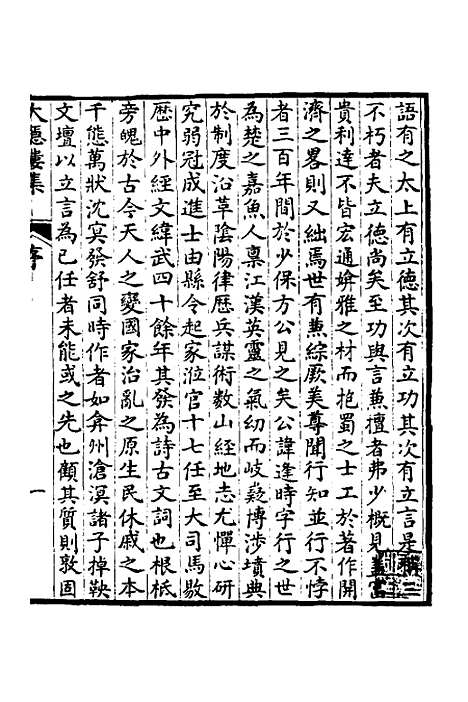 語有之太上有立德其次有立功其次有立言是稱三
不朽者夫立德尚矣至功與言蕙擅者弗少概見蓋富
貴利達不皆宏通媕雅之材而抱蜀之士工於著作開
濟之畧則又絀焉世有蕙綜厥美尊聞行知並行不悖
者三百年間於少保方公見之矣公諱逢時字行之世
為楚之嘉魚人稟江漢英靈之氣幼而岐嶷博涉墳典
於制度沿革陰陽律歷兵謀術數山經地志尤憚心研
究弱冠成進士由縣令起家涖官十七任至大司馬敭
歷中外經文緯武四十餘年其發為詩古文詞也根柢
旁魄於古今天人之變國家治亂之原生民休戚之本
千態萬狀沈冥發舒同時作者如弇州滄溟諸子掉鞅
文壇以立言為已任者未能或之先也顧其質則敦固
大隱樓集
序
一